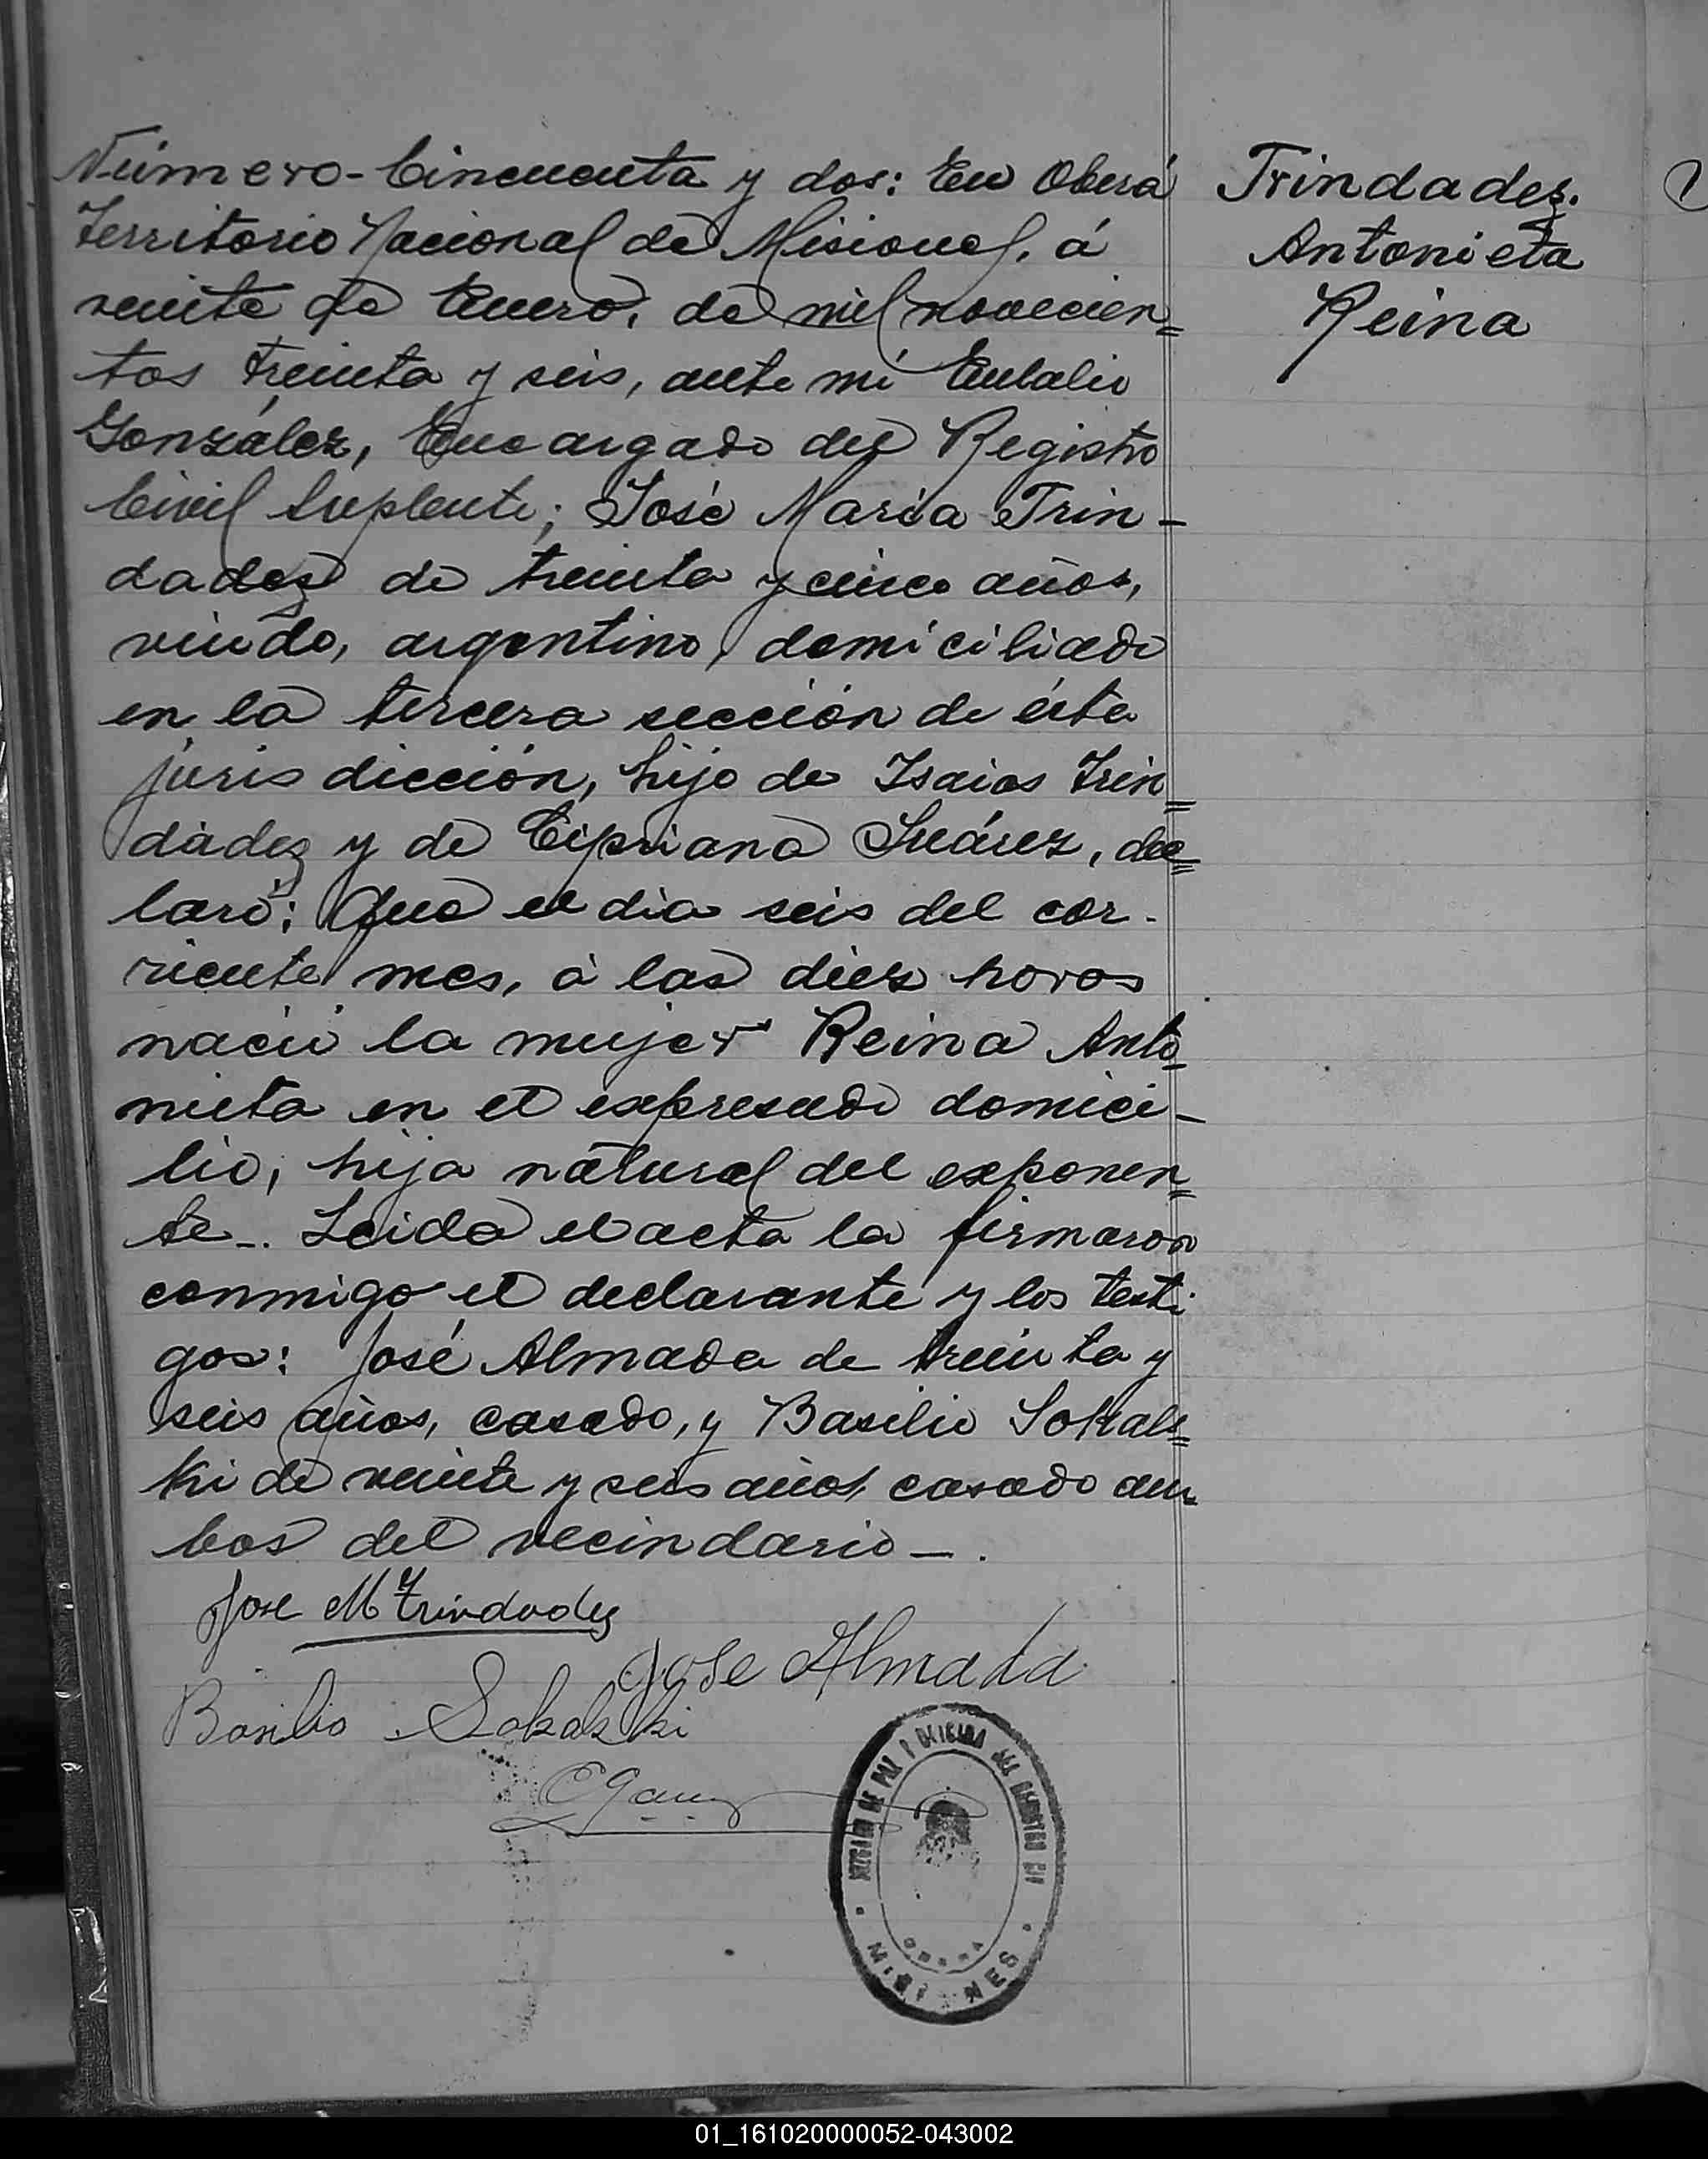 Número-Cincuenta y dos: En Oberá
Territorio Nacional de Misiones, á
veinte de Enero, de mil novecien=
tos treinta y seis, ante mi Eulalio
González, Encargado del Registro
Civil Suplente; José María Trin-
dadez de treinta y cinco años,
viudo, argentino, domiciliado
en la tercera sección de ésta
jurisdicción, hijo de Isaias Trin=
dadez y de Cipriana Suárez, dec=
laró: Que el dia seis del cor-
riente mes, á las diez horas
nació la mujer Reina Anto=
nieta en el expresado domici-
lio, hija natural del exponen=
te-. Leida el acta la firmaron
conmigo el declarante y los testi
gos: José Almada de treinta y
seis años, casado, y Basilio Sokals=
ki de veinte y seis años, casado am
bos del vecindario-.
Jose M Trindadez
Jose Almada
Basilio Sokalski
Trindadez.
Antonieta
Reina
JUZGADO DE PAZ Y OFICINA DEL REGISTRO CIV
OBERA
MISIONES
01_161020000052-043002